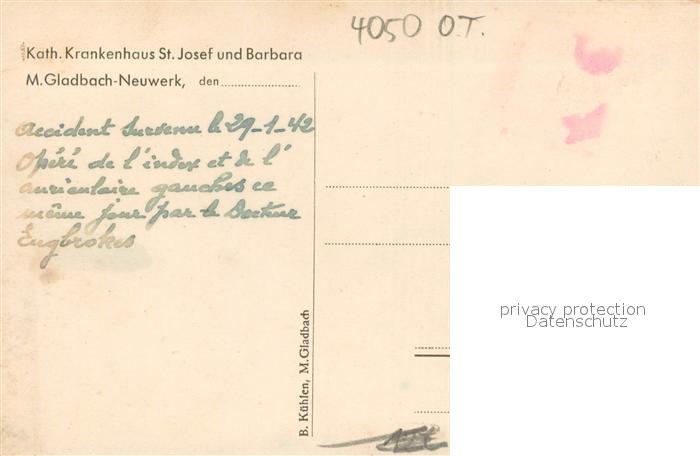 4050 O.T.
Kath. Krankenhaus St. Josef und Barbara
M.Gladbach-Neuwerk, den
Accident survenu le 29-1-42
Opéré de l'index et de l'
auriculaire gauches ce
même jour par le Docteur
Engbrokes
B. Kühlen, M. Gladbach
privacy protection
Datenschutz